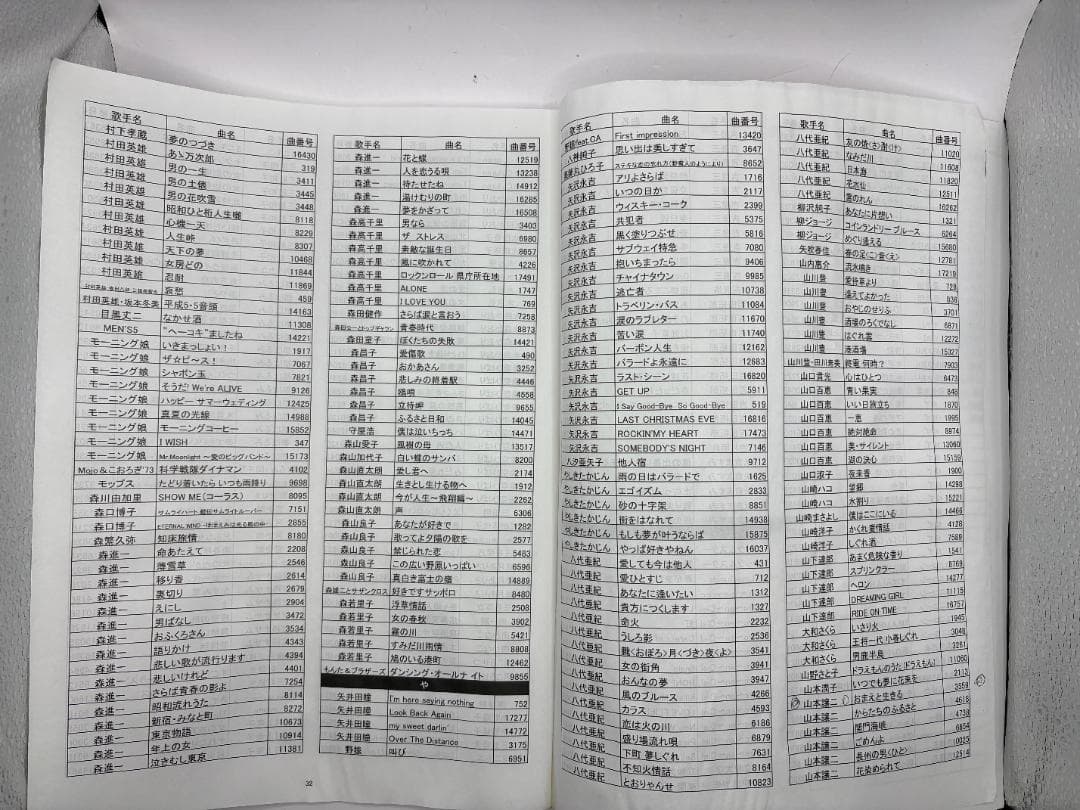 歌手名 曲名 曲番号
村下孝蔵 夢のつづき 16430
村田英雄 あゝ万次郎 319
村田英雄 男の一生 3411
村田英雄 男の土俵 3445
村田英雄 男の花吹雪 3448
村田英雄 昭和ひと桁人生橋 8118
村田英雄 心機一天 8229
村田英雄 人生峠 8307
村田英雄 天下の夢 10468
村田英雄 女房どの 11844
村田英雄 忍耐 11869
哀愁 459
村田英雄・坂本冬美 平成5・5音頭 14163
目黒丈二 なかせ酒 11308
MEN'S5 "ヘーコキ"ましたね 14221
モーニング娘 いきまっしょい! 1917
モーニング娘 ザ☆ピ〜ス! 7067
モーニング娘 シャボン玉 7821
モーニング娘 そうだ! We're ALIVE 9126
モーニング娘 ハッピー サマーウェディング 12425
モーニング娘 真夏の光線 14988
モーニング娘 モーニングコーヒー 15852
モーニング娘 I WISH 347
モーニング娘 Mr.Moonlight 〜愛のビッグバンド〜 15173
Mojo&こおろぎ'73 科学戦隊ダイナマン 4102
モップス たどり着いたら いつも雨降り 9698
森川由加里 SHOW ME(コーラス) 8095
森口博子 サムライハート 7151
森口博子 ETERNAL WIND 2855
森繁久弥 知床旅情 8180
森進一 命あたえて 2208
森進一 薄雪草 2546
森進一 移り香 2614
森進一 裏切り 2679
森進一 えにし 2904
森進一 男ばなし 3472
森進一 おふくろさん 3534
森進一 語りかけ 4343
森進一 悲しい歌が流行ります 4394
森進一 悲しいけれど 4401
森進一 さらば青春の影よ 7254
森進一 昭和流れうた 8114
森進一 新宿・みなと町 8272
森進一 東京物語 10673
森進一 年上の女 10914
森進一 泣きむし東京 11381
歌手名 曲名 曲番号
森進一 花と蝶 12519
森進一 人を恋うる唄 13238
森進一 待たせたね 14912
森進一 湯けむりの町 16285
森進一 夢をかざって 16508
森高千里 男なら 3403
森高千里 ザ ストレス 6980
森高千里 素敵な誕生日 8657
森高千里 風に吹かれて 4226
森高千里 ロックンロール 県庁所在地 17491
森高千里 ALONE 1747
森高千里 I LOVE YOU 769
森田健作 さらば涙と言おう 7258
青春時代 8873
森田童子 ぼくたちの失敗 14421
森昌子 愛傷歌 490
森昌子 おかあさん 3252
森昌子 悲しみの終着駅 4446
森昌子 4558
森昌子 立待岬 9655
森昌子 ふるさと日和 14045
守屋浩 僕は泣いちっち 14471
森山愛子 風樹の母 13517
森山加代子 白い蝶のサンバ 8200
森山直太朗 愛し君へ 2174
森山直太朗 生きとし生ける物へ 1912
森山直太朗 今が人生〜飛翔編〜 2262
森山直太朗 声 6306
森山良子 あなたが好きで 1282
森山良子 歌ってよ夕陽の歌を 2577
森山良子 禁じられた恋 5483
森山良子 この広い野原いっぱい 6596
森山良子 真白き富士の嶺 14889
森雄二とサザンクロス 好きですサッポロ 8480
森若里子 浮草情話 2508
森若里子 女の春秋 3902
森若里子 霧の川 5421
森若里子 すみだ川雨情 8808
森若里子 鳩のいる湊町 12462
もんた&ブラザーズ ダンシング・オールナイト 9855
や
矢井田瞳 I'm here saying nothing 752
矢井田瞳 Look Back Again 17277
矢井田瞳 my sweet darlin' 14772
矢井田瞳 Over The Distance 3175
野猿 叫び 6951
32
歌手名 曲名 曲番号
野猿feat.CA First impression 13420
八神純子 思い出は美しすぎて 3647
ステキな恋の忘れ方 8652
矢沢永吉 アリよさらば 1716
矢沢永吉 いつの日か 2117
矢沢永吉 ウィスキー・コーク 2399
矢沢永吉 共犯者 5375
矢沢永吉 黒く塗りつぶせ 5816
矢沢永吉 サブウェイ特急 7080
矢沢永吉 抱いちまったら 9406
矢沢永吉 チャイナタウン 9985
矢沢永吉 逃亡者 10738
矢沢永吉 トラベリン・バス 11084
矢沢永吉 涙のラブレター 11670
矢沢永吉 苦い雨 11740
矢沢永吉 バーボン人生 12162
矢沢永吉 バラードよ永遠に 12683
矢沢永吉 ラスト・シーン 16820
矢沢永吉 GET UP 5911
矢沢永吉 I Say Good-Bye So Good-Bye 519
矢沢永吉 LAST CHRISTMAS EVE 16816
矢沢永吉 ROCKIN'MY HEART 17473
矢沢永吉 SOMEBODY'S NIGHT 7146
八汐亜矢子 他人宿 9712
やしきたかじん 雨の日はバラードで 1625
やしきたかじん エゴイズム 2833
やしきたかじん 砂の十字架 8851
やしきたかじん 街をはなれて 14938
やしきたかじん もしも夢が叶うならば 15875
やしきたかじん やっぱ好きやねん 16037
八代亜紀 愛しても今は他人 431
八代亜紀 愛ひとすじ 712
八代亜紀 あなたに逢いたい 1312
八代亜紀 貴方につくします 1327
八代亜紀 命火 2232
八代亜紀 うしろ影 2536
八代亜紀 朧(おぼろ)月(づき)夜(よ) 3541
八代亜紀 女の街角 3941
八代亜紀 おんなの夢 3947
八代亜紀 風のブルース 4266
八代亜紀 カラス 4593
八代亜紀 恋は火の川 6186
八代亜紀 盛り場流れ唄 6879
八代亜紀 下町 夢しぐれ 7631
八代亜紀 不知火情話 8164
八代亜紀 とおりゃんせ 10823
歌手名 曲名 曲番号
八代亜紀 友の焼(さ)酎(け) 11020
八代亜紀 なみだ川 11608
八代亜紀 日本海 11820
八代亜紀 花水仙 12511
八代亜紀 雪のれん 16262
柳沢純子 あなたに片想い 1321
柳ジョージ コインランドリー ブルース 6264
柳ジョージ めぐり逢える 15680
矢吹春佳 春の足(こ)音(え) 12781
山内惠介 流氷鳴き 17219
山川豊 愛待草より 729
山川豊 逢えてよかった 838
山川豊 おやじのせりふ 3701
山川豊 酒場のろくでなし 6871
山川豊 はぐれ雲 12272
山川豊 港酒場 15327
山川豊・田川寿美 終電 何時? 7903
山口貴光 心はひとつ 6473
山口百恵 青い果実 848
山口百恵 いい日旅立ち 1870
山口百恵 一恵 1995
山口百恵 絶対絶命 8974
山口百恵 美・サイレント 13090
山口百恵 湖の決心 15159
山口淑子 夜来香 1900
山崎ハコ 望郷 14298
山崎ハコ 水割り 15221
山崎まさよし 僕はここにいる 14466
山崎洋子 かくれ妻情話 4128
山崎洋子 しぐれ酒 7589
山下達郎 あまく危険な香り 1541
山下達郎 スプリンクラー 8769
山下達郎 ヘロン 14277
山下達郎 DREAMING GIRL 11115
山下達郎 RIDE ON TIME 16757
大和さくら いさり火 1945
大和さくら 王将一代 小春しぐれ 3048
大和さくら 男鹿半島 3261
山野さと子 ドラえもんのうた(ドラえもん) 11060
山本潤子 いつでも夢に花束を 2112
山本譲二 おまえと生きる 3559
山本譲二 からたちのふるさと 4618
山本譲二 関門海峡 4738
山本譲二 ごめんよ 6854
山本譲二 長州の男(ひと) 10025
山本譲二 花染められて 12514